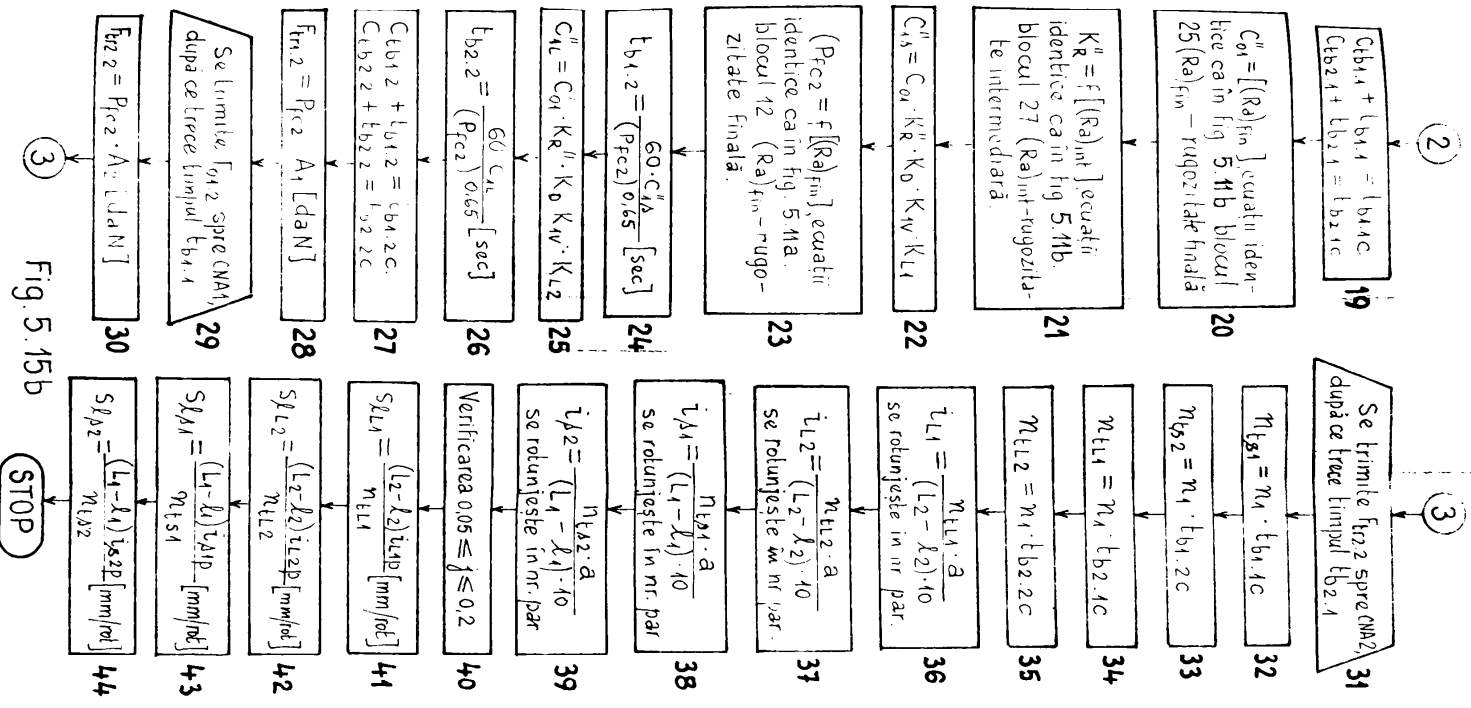 2
C tb1.1 + t b1.1 = t b1.1c
C tb2.1 + t b2.1 = t b2.1c
19
C''01 = [(Ra)fin] ecuații iden-
tice ca în fig 5.11b blocul
25 (Ra)fin – rugozitate finală
20
K''R = f[(Ra)int], ecuații
identice ca în fig 5.11b.
blocul 27 (Ra)int-rugozita-
te intermediară
21
C''1s = C01 · K''R · KD · K1V · KL1
22
(Pfc2 = f[(Ra)fin], ecuații
identice ca în fig. 5.11a
blocul 12 (Ra)fin – rugo-
zitate finală.
23
t b1.2 = 60 · C''1s / (Pfc2) 0,65 [sec]
24
C''1L = C01 · KR'' · KD K1V · KL2
25
t b2.2 = 60 C1L / (Pfc2) 0.65 [sec]
26
C tb1.2 + t b1.2 = t b1.2c.
C tb2.2 + t b2.2 = t b2.2c
27
F tr1.2 = Pfc2 · A1 [daN]
28
Se trimite F tr1.2 spre CNA1,
după ce trece timpul t b1.1
29
F tr2.2 = Pfc2 · A2 [daN]
30
3
3
Se trimite F tr2.2 spre CNA2,
după ce trece timpul t b2.1
31
n ts1 = n1 · t b1.1c
32
n ts2 = n1 · t b1.2c
33
n tL1 = n1 · t b2.1c
34
n tL2 = n1 · t b2.2c
35
i L1 = n tL1 · a / (L2 – l2) · 10
se rotunjeste in nr par.
36
i L2 = n tL2 · a / (L2 – l2) · 10
se rotunjeste în nr par.
37
i s1 = n ts1 · a / (L1 – l1) · 10
se rotunjeste în nr. par
38
i s2 = n ts2 · a / (L1 – l1) · 10
se rotunjeste în nr. par
39
Verificarea 0,05 ≤ j ≤ 0,2
40
S lL1 = (L2 – l2) i L1p / n tL1 [mm/rot]
41
S lL2 = (L2 – l2) i L2p / n tL2 [mm/rot]
42
S ls1 = (L1 – l1) i s1p / n ts1 [mm/rot]
43
S ls2 = (L1 – l1) i s2p / n ts2 [mm/rot]
44
STOP
Fig. 5.15b